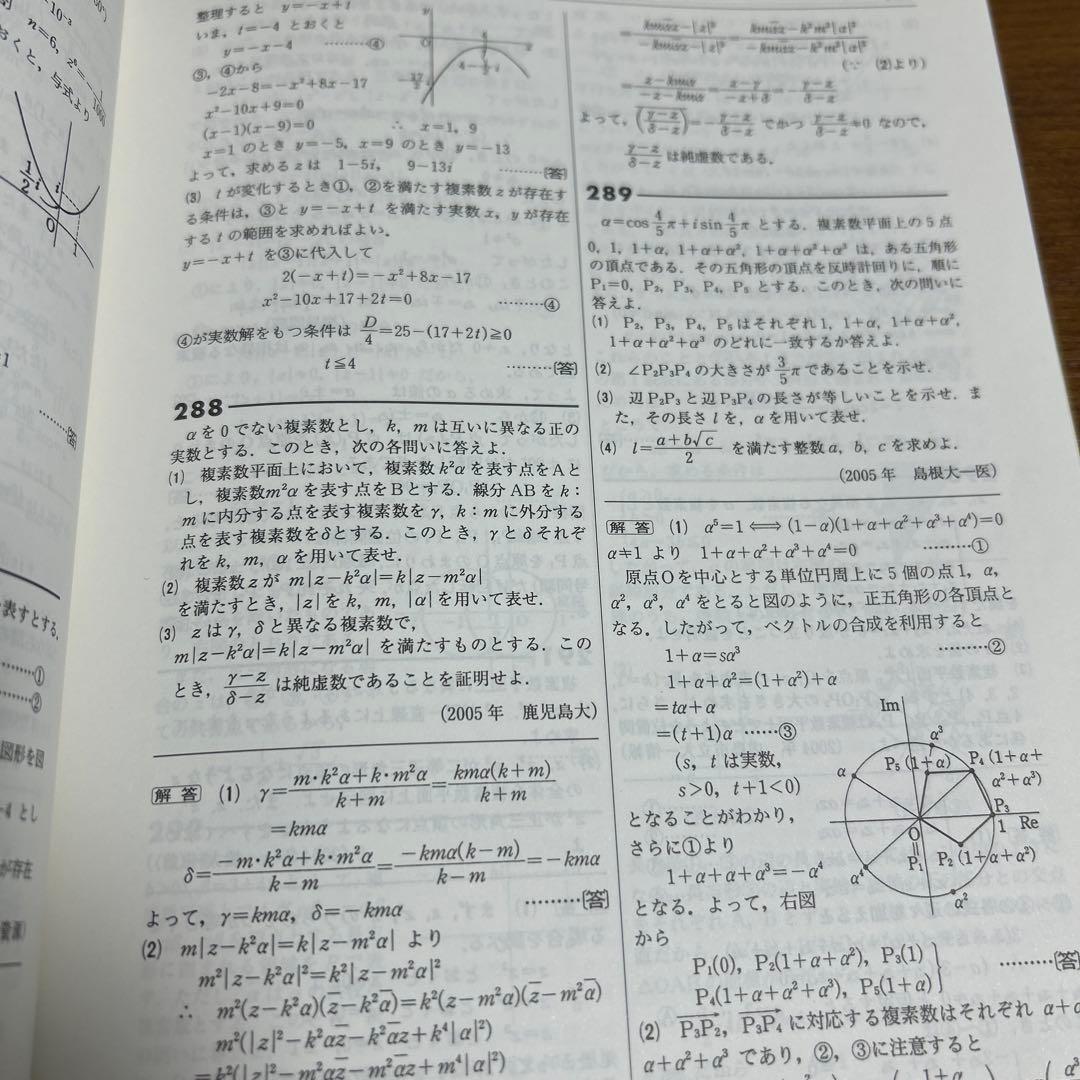 整理すると y=-x+t
いま，t=-4 とおくと
y=-x-4 ………④
③，④から
-2x-8=-x²+8x-17
x²-10x+9=0
(x-1)(x-9)=0 ∴ x=1，9
x=1 のとき y=-5，x=9 のとき y=-13
よって，求める z は 1-5i， 9-13i ………〔答〕
(3) t が変化するとき①，②を満たす複素数 z が存在す
る条件は，③と y=-x+t を満たす実数 x，y が存在
する t の範囲を求めればよい．
y=-x+t を③に代入して
2(-x+t)=-x²+8x-17
x²-10x+17+2t=0 ………④
④が実数解をもつ条件は D/4=25-(17+2t)≧0
t≦4 ………〔答〕
288
α を 0 でない複素数とし，k，m は互いに異なる正の
実数とする．このとき，次の各問いに答えよ．
(1) 複素数平面上において，複素数 k²α を表す点を A と
し，複素数 m²α を表す点を B とする．線分 AB を k：
m に内分する点を表す複素数を γ，k：m に外分する
点を表す複素数を δ とする．このとき，γ と δ それぞ
れを k，m，α を用いて表せ．
(2) 複素数 z が m|z-k²α|=k|z-m²α|
を満たすとき，|z| を k，m，|α| を用いて表せ．
(3) z は γ，δ と異なる複素数で，
m|z-k²α|=k|z-m²α| を満たすものとする．この
とき，(γ-z)/(δ-z) は純虚数であることを証明せよ．
(2005 年 鹿児島大)
解答 (1) γ=(m・k²α+k・m²α)/(k+m)=kmα(k+m)/(k+m)
=kmα
δ=(-m・k²α+k・m²α)/(k-m)=-kmα(k-m)/(k-m)=-kmα
よって，γ=kmα，δ=-kmα ………〔答〕
(2) m|z-k²α|=k|z-m²α| より
m²|z-k²α|²=k²|z-m²α|²
∴ m²(z-k²α)(z̅-k²α̅)=k²(z-m²α)(z̅-m²α̅)
m²(|z|²-k²αz̅-k²α̅z+k⁴|α|²)
=k²(|z|²-m²αz̅-m²α̅z+m⁴|α|²)
(∵ (2)より)
は純虚数である．
289
α=cos 4/5 π+i sin 4/5 π とする．複素数平面上の 5 点
0，1，1+α，1+α+α²，1+α+α²+α³ は，ある五角形
の頂点である．その五角形の頂点を反時計回りに，順に
P₁=0，P₂，P₃，P₄，P₅ とする．このとき，次の問いに
答えよ．
(1) P₂，P₃，P₄，P₅ はそれぞれ 1，1+α，1+α+α²，
1+α+α²+α³ のどれに一致するか答えよ．
(2) ∠P₂P₃P₄ の大きさが 3/5 π であることを示せ．
(3) 辺 P₂P₃ と辺 P₃P₄ の長さが等しいことを示せ．ま
た，その長さ l を，α を用いて表せ．
(4) l=(a+b√c)/2 を満たす整数 a，b，c を求めよ．
(2005 年 島根大―医)
解答 (1) α⁵=1⟺(1-α)(1+α+α²+α³+α⁴)=0
α≠1 より 1+α+α²+α³+α⁴=0 ………①
原点 O を中心とする単位円周上に 5 個の点 1，α，
α²，α³，α⁴ をとると図のように，正五角形の各頂点と
なる．したがって，ベクトルの合成を利用すると
1+α=sα³ ………②
1+α+α²=(1+α²)+α
=tα+α
=(t+1)α ……③
(s，t は実数，
s>0，t+1<0)
となることがわかり，
さらに①より
1+α+α+α³=-α⁴
となる．よって，右図
から
Im
α³
P₅(1+α)
P₄(1+α+
α²+α³)
α
P₃
O
1 Re
P₁
P₂(1+α+α²)
α⁴
α²
P₁(0)，P₂(1+α+α²)，P₃(1)
P₄(1+α+α²+α³)，P₅(1+α) ………〔答
(2) P₃P₂，P₃P₄ に対応する複素数はそれぞれ α+α
α+α²+α³ であり，②，③に注意すると